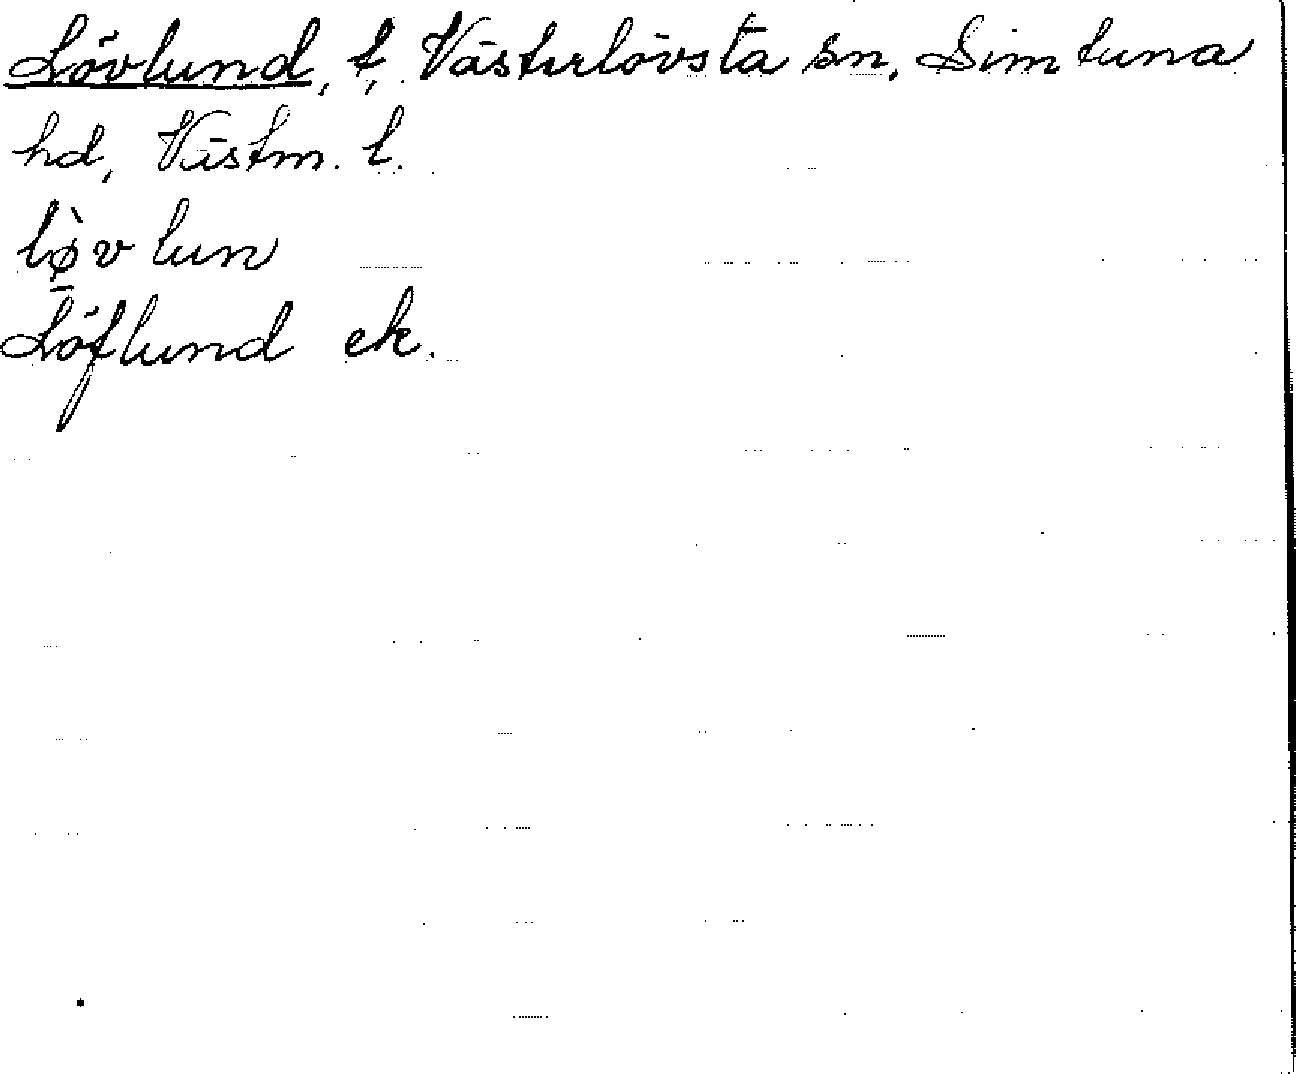 Lövlund, t, Västerlövsta sn, Simtuna
hd, Västm. l.
lø̀v lun
Löflund ek.